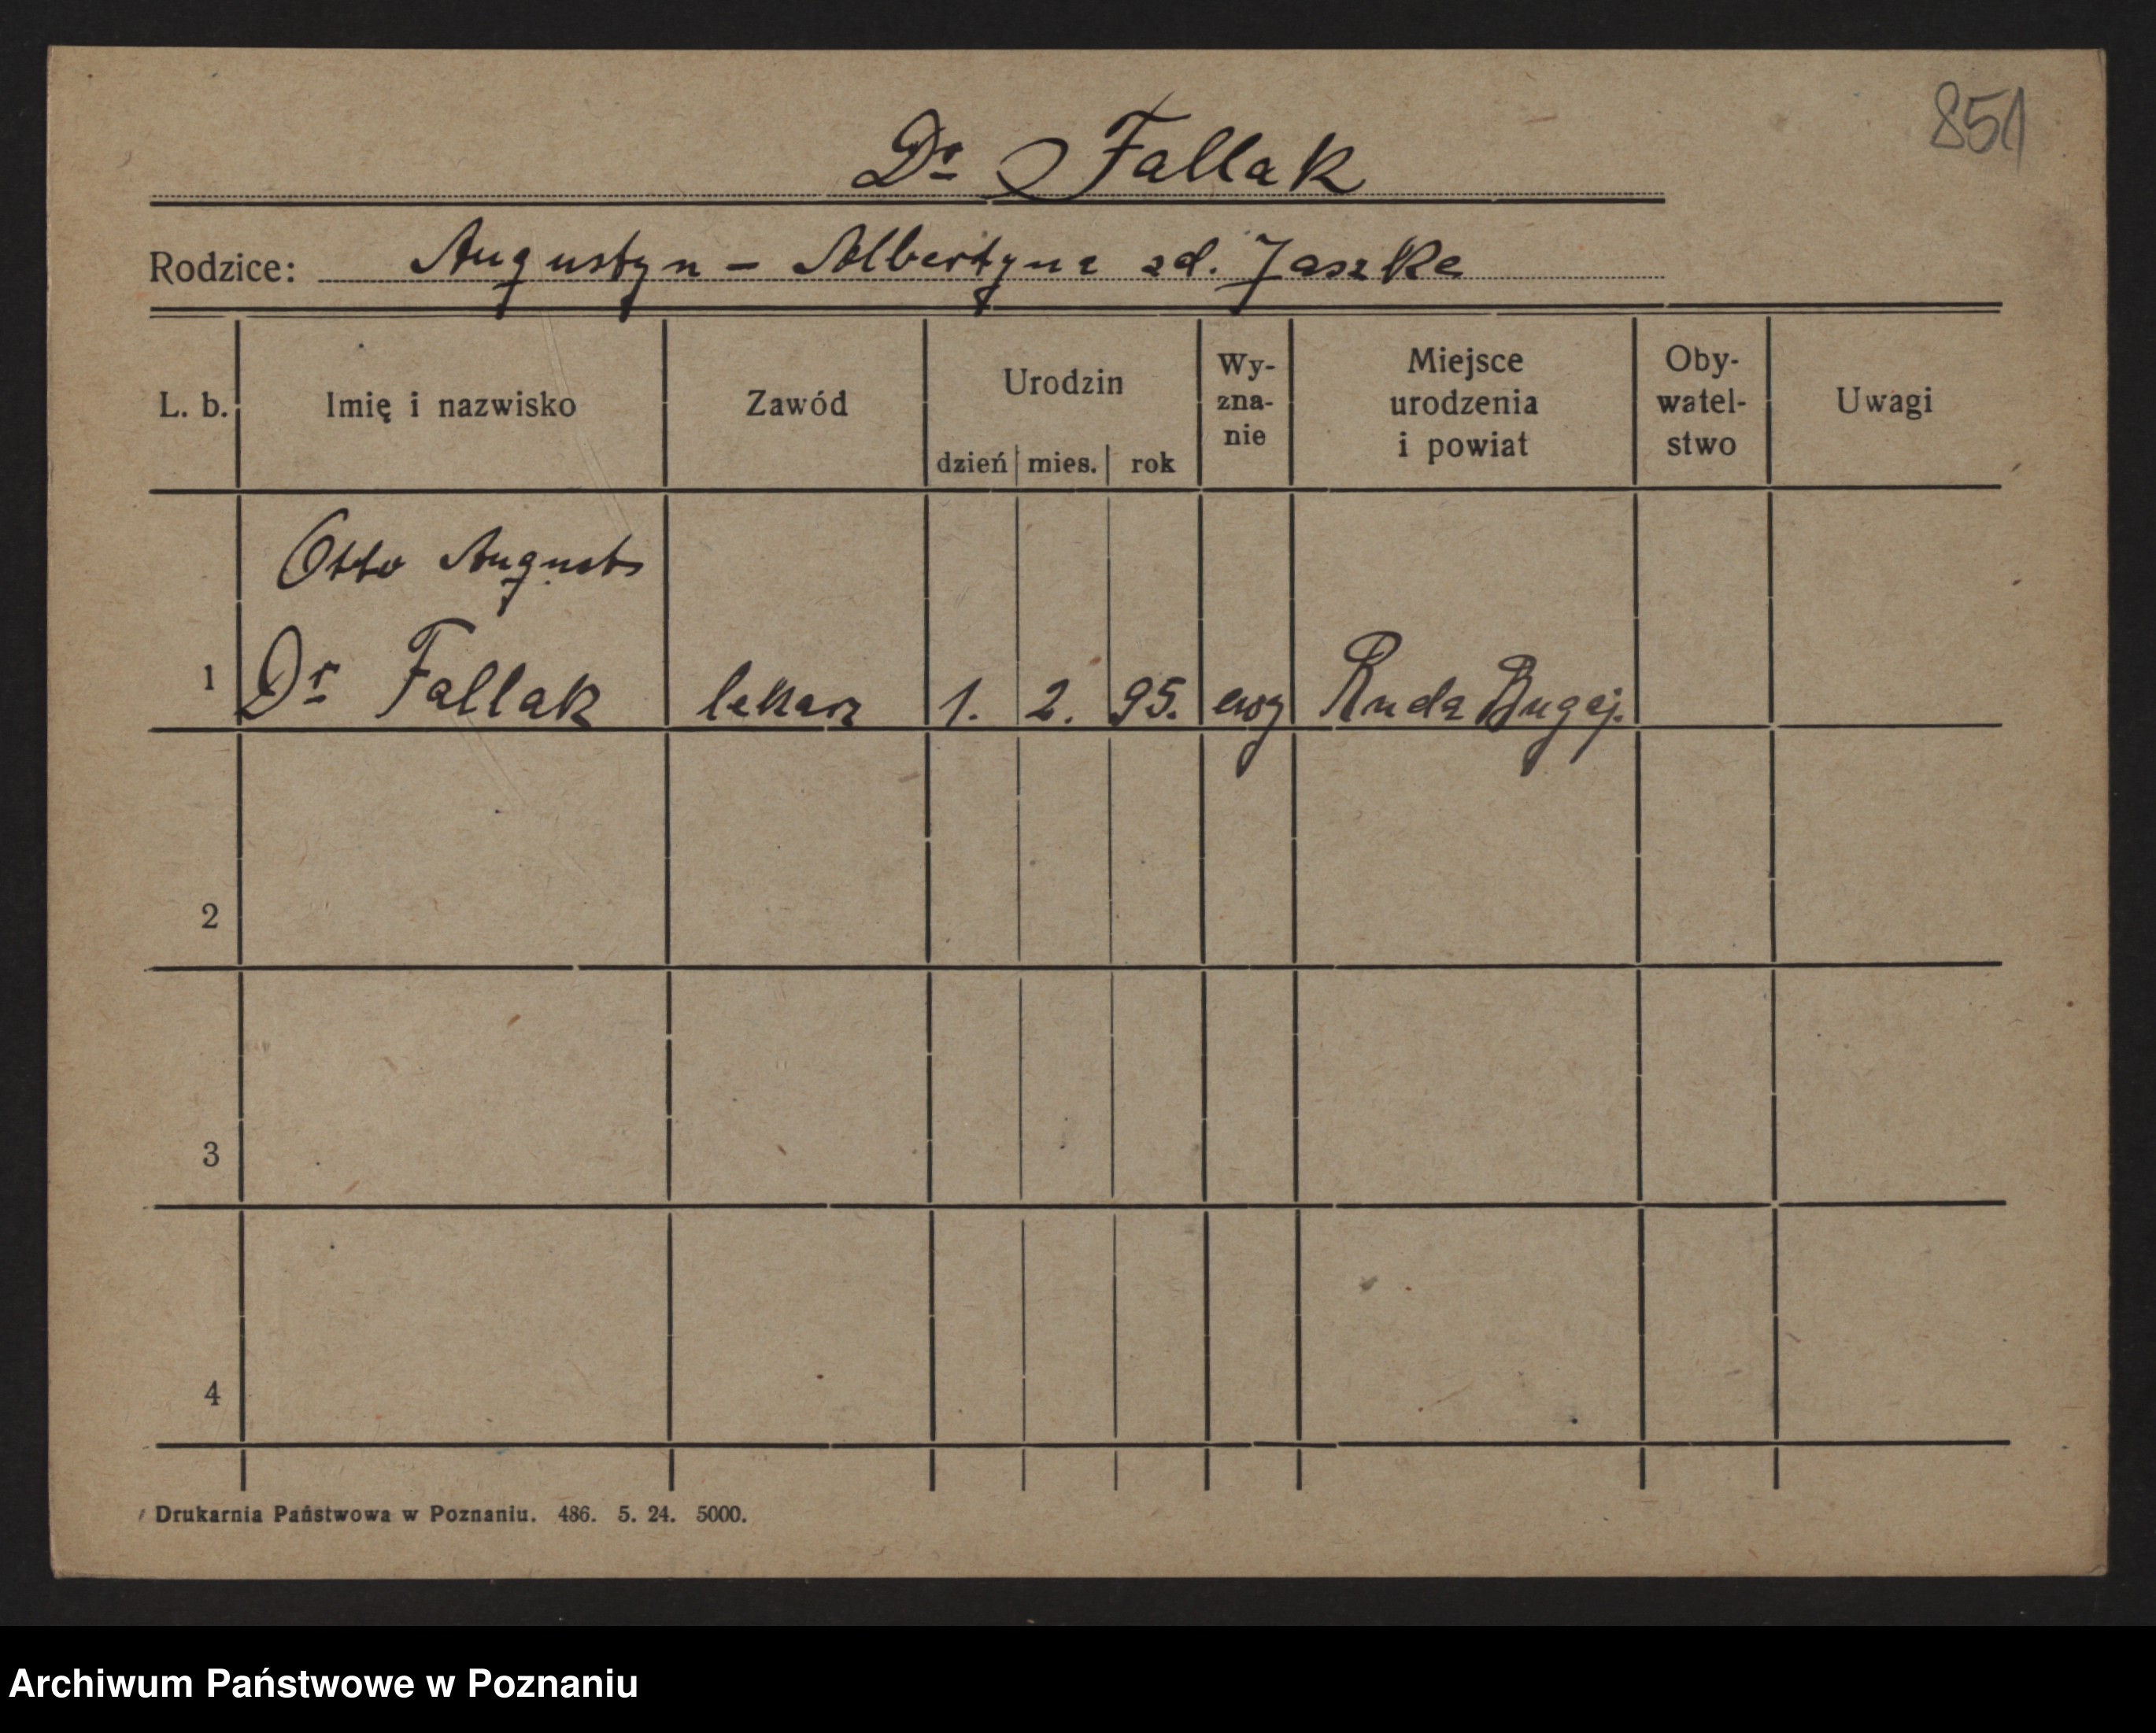 851
Dr Fallak
Rodzice: Augustyn - Albertyna zd. Jaszke
L. b. Imię i nazwisko Zawód Urodzin dzień mies. rok Wy-zna-nie Miejsce urodzenia i powiat Oby-watel-stwo Uwagi
Otto August
1 Dr Fallak lekarz 1. 2. 95. ewg Ruda Bugaj.
2
3
4
Drukarnia Państwowa w Poznaniu. 486. 5. 24. 5000.
Archiwum Państwowe w Poznaniu